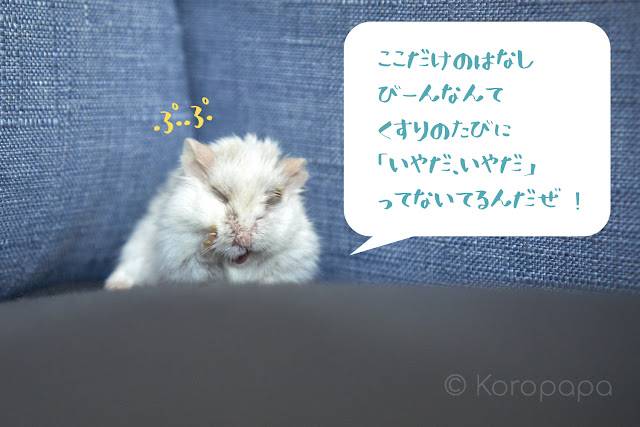 ここだけのはなし
びーんなんて
くすりのたびに
「いやだ、いやだ」
ってないてるんだぜ！
ぷぷ
© Koropapa